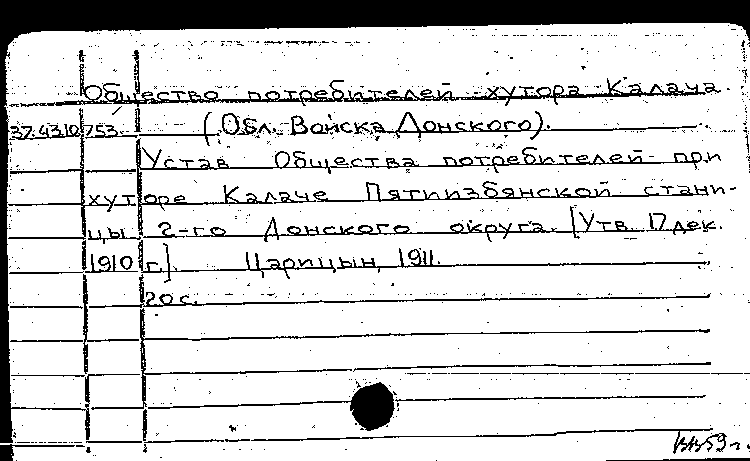 Общество потребителей хутора Калача.
37.43.10.753. (Обл. Войска Донского).
Устав Общества потребителей при
хуторе Калаче Пятиизбянской стани-
цы 2-го Донского округа. [Утв. 17 дек.
1910 г.]. Царицын, 1911.
20 с.